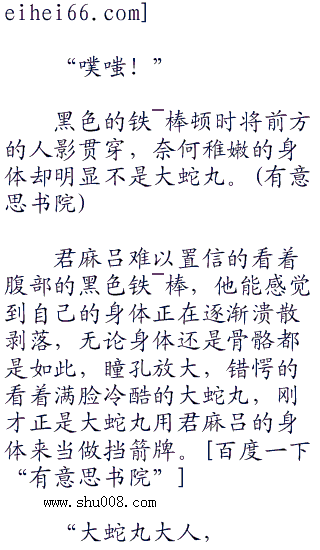 eihei66.com]
“噗嗤！”
黑色的铁¯棒顿时将前方
的人影贯穿，奈何稚嫩的身
体却明显不是大蛇丸。(有意
思书院)
君麻吕难以置信的看着
腹部的黑色铁¯棒，他能感觉
到自己的身体正在逐渐溃散
剥落，无论身体还是骨骼都
是如此，瞳孔放大，错愕的
看着满脸冷酷的大蛇丸，刚
才正是大蛇丸用君麻吕的身
体来当做挡箭牌。[百度一下
“有意思书院”]
www.shu008.com
“大蛇丸大人，